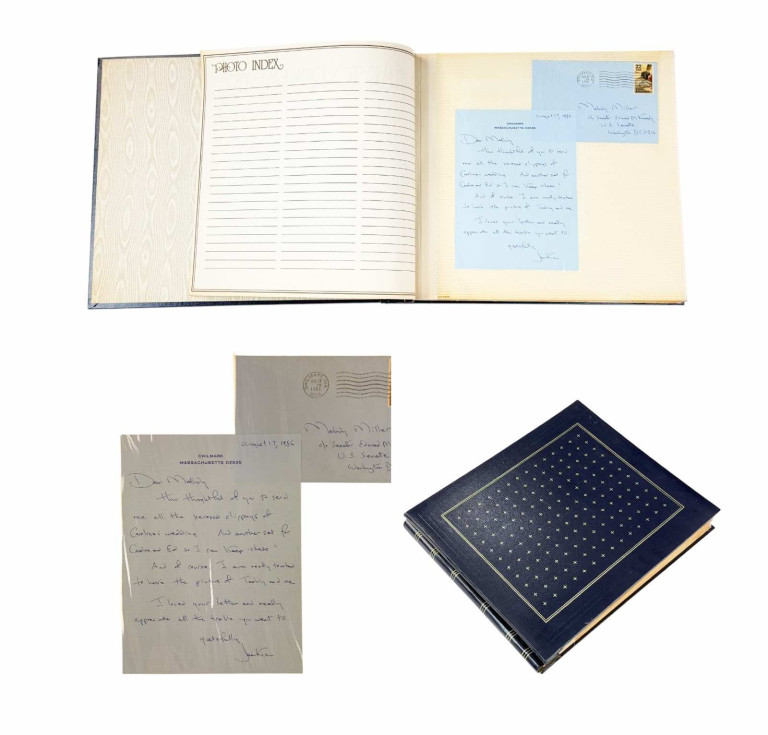 PHOTO INDEX
Melody Miller
c/o Senator Edward M. Kennedy
U.S. Senate
Washington
August 17, 1986
CHILMARK
MASSACHUSETTS 02535
Dear Melody
How thoughtful of you to send
me all the xeroxed clippings of
Caroline's wedding. And another set for
Caroline and Ed so I can keep these!
And of course I am really touched
to have the picture of Teddy and me
I loved your letter and really
appreciate all the trouble you went to
gratefully
Jackie
Melody Miller
c/o Senator Edward M
U.S. Senate
Washington
August 17, 1986
CHILMARK
MASSACHUSETTS 02535
Dear Melody
How thoughtful of you to send
me all the xeroxed clippings of
Caroline's wedding. And another set for
Caroline and Ed so I can keep these!
And of course I am really touched
to have the picture of Teddy and me
I loved your letter and really
appreciate all the trouble you went to
gratefully
Jackie